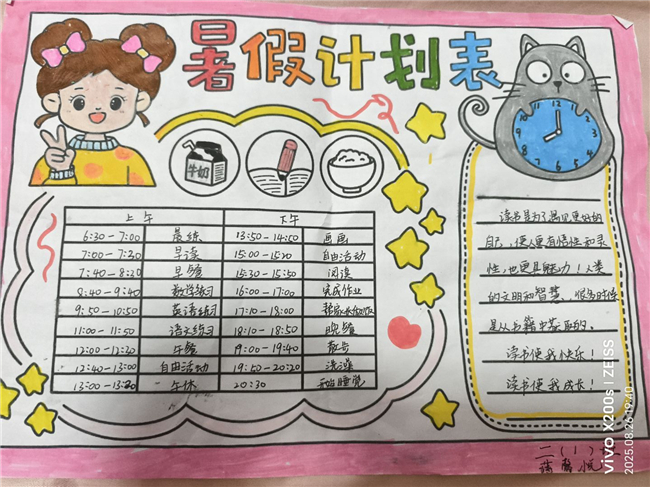 暑假计划表
牛奶
12
11
10
9
8
7
6
5
4
3
2
1
上午 下午
6:30-7:00 晨练 13:50-14:50 画画
7:00-7:30 早读 15:00-15:20 自由活动
7:40-8:20 早餐 15:30-15:50 阅读
8:40-9:40 数学练习 16:00-17:00 完成作业
9:50-10:50 英语练习 17:10-18:00
11:00-11:50 语文练习 18:10-18:50 晚餐
12:00-12:30 午餐 19:00-19:40 散步
12:40-13:00 自由活动 19:50-20:20 洗澡
13:00-13:30 午休 20:30 开始睡觉
读书是为了遇见更好的
自己,使人更有悟性和灵
性,也更具魅力!人类
的文明和智慧,很多时候
是从书籍中获取的。
读书使我快乐!
读书使我成长!
二(1)
vivo X200s | ZEISS
2025.08.26 19:40